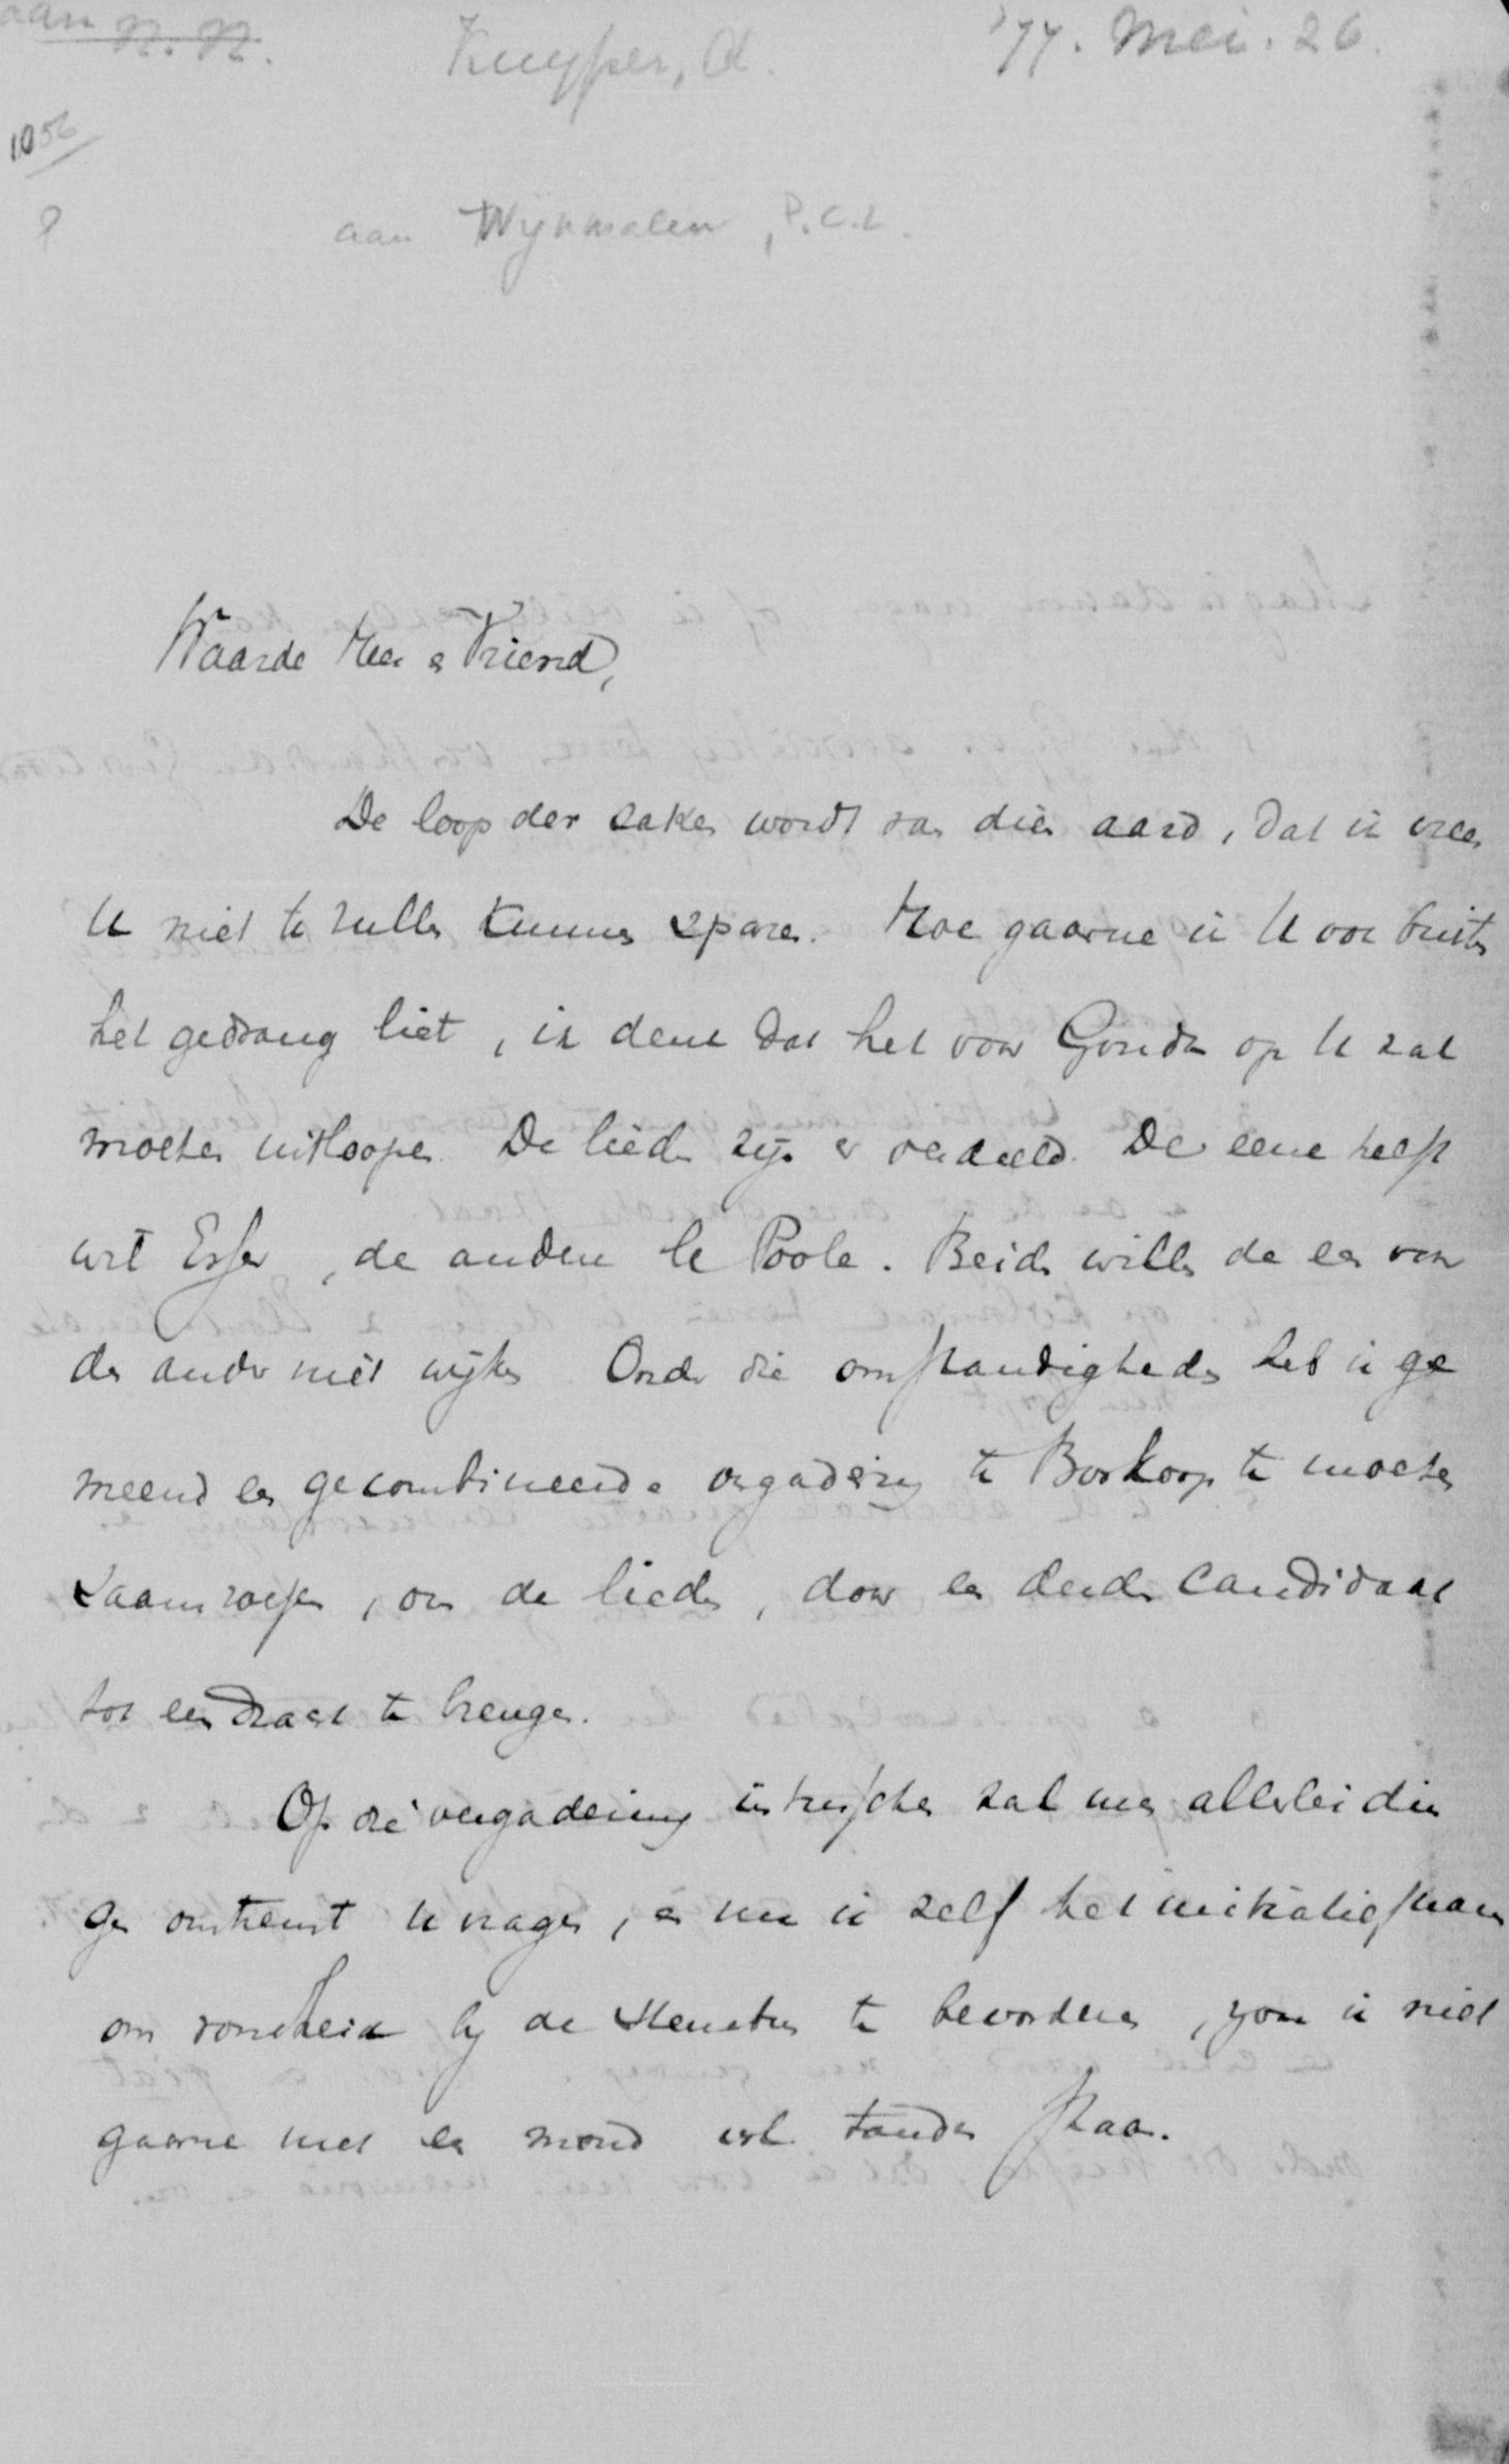 aan N.N.
Kuyper, A.
'77. Mei. 26.
1056
?
aan Wijnmalen, P.C.L.
Waarde Heer en Vriend,
De loop der zaken wordt van dien aard, dat ik vrees
U niet te zullen kunnen sparen. Hoe gaarne ik U ook buiten
het gedrang liet, ik denk dat het voor Gouda op U zal
moeten uitloopen. De lieden zijn er verdeeld. De eene helft
wil Esser, de andere le Poole. Beiden willen de een voor
den ander niet wijken. Onder die omstandigheden heb ik ge
meend een gecombineerde vergadering te Boskoop te moeten
saamroepen, om de lieden, door een derden candidaat
tot eendracht te brengen.
Op die vergadering intusschen zal men allerlei din
gen omtrent U vragen, en nu ik zelf het initiatief nam
om eenheid bij de Heeren te bevorderen, zou ik niet
gaarne met een mond vol tanden staan.